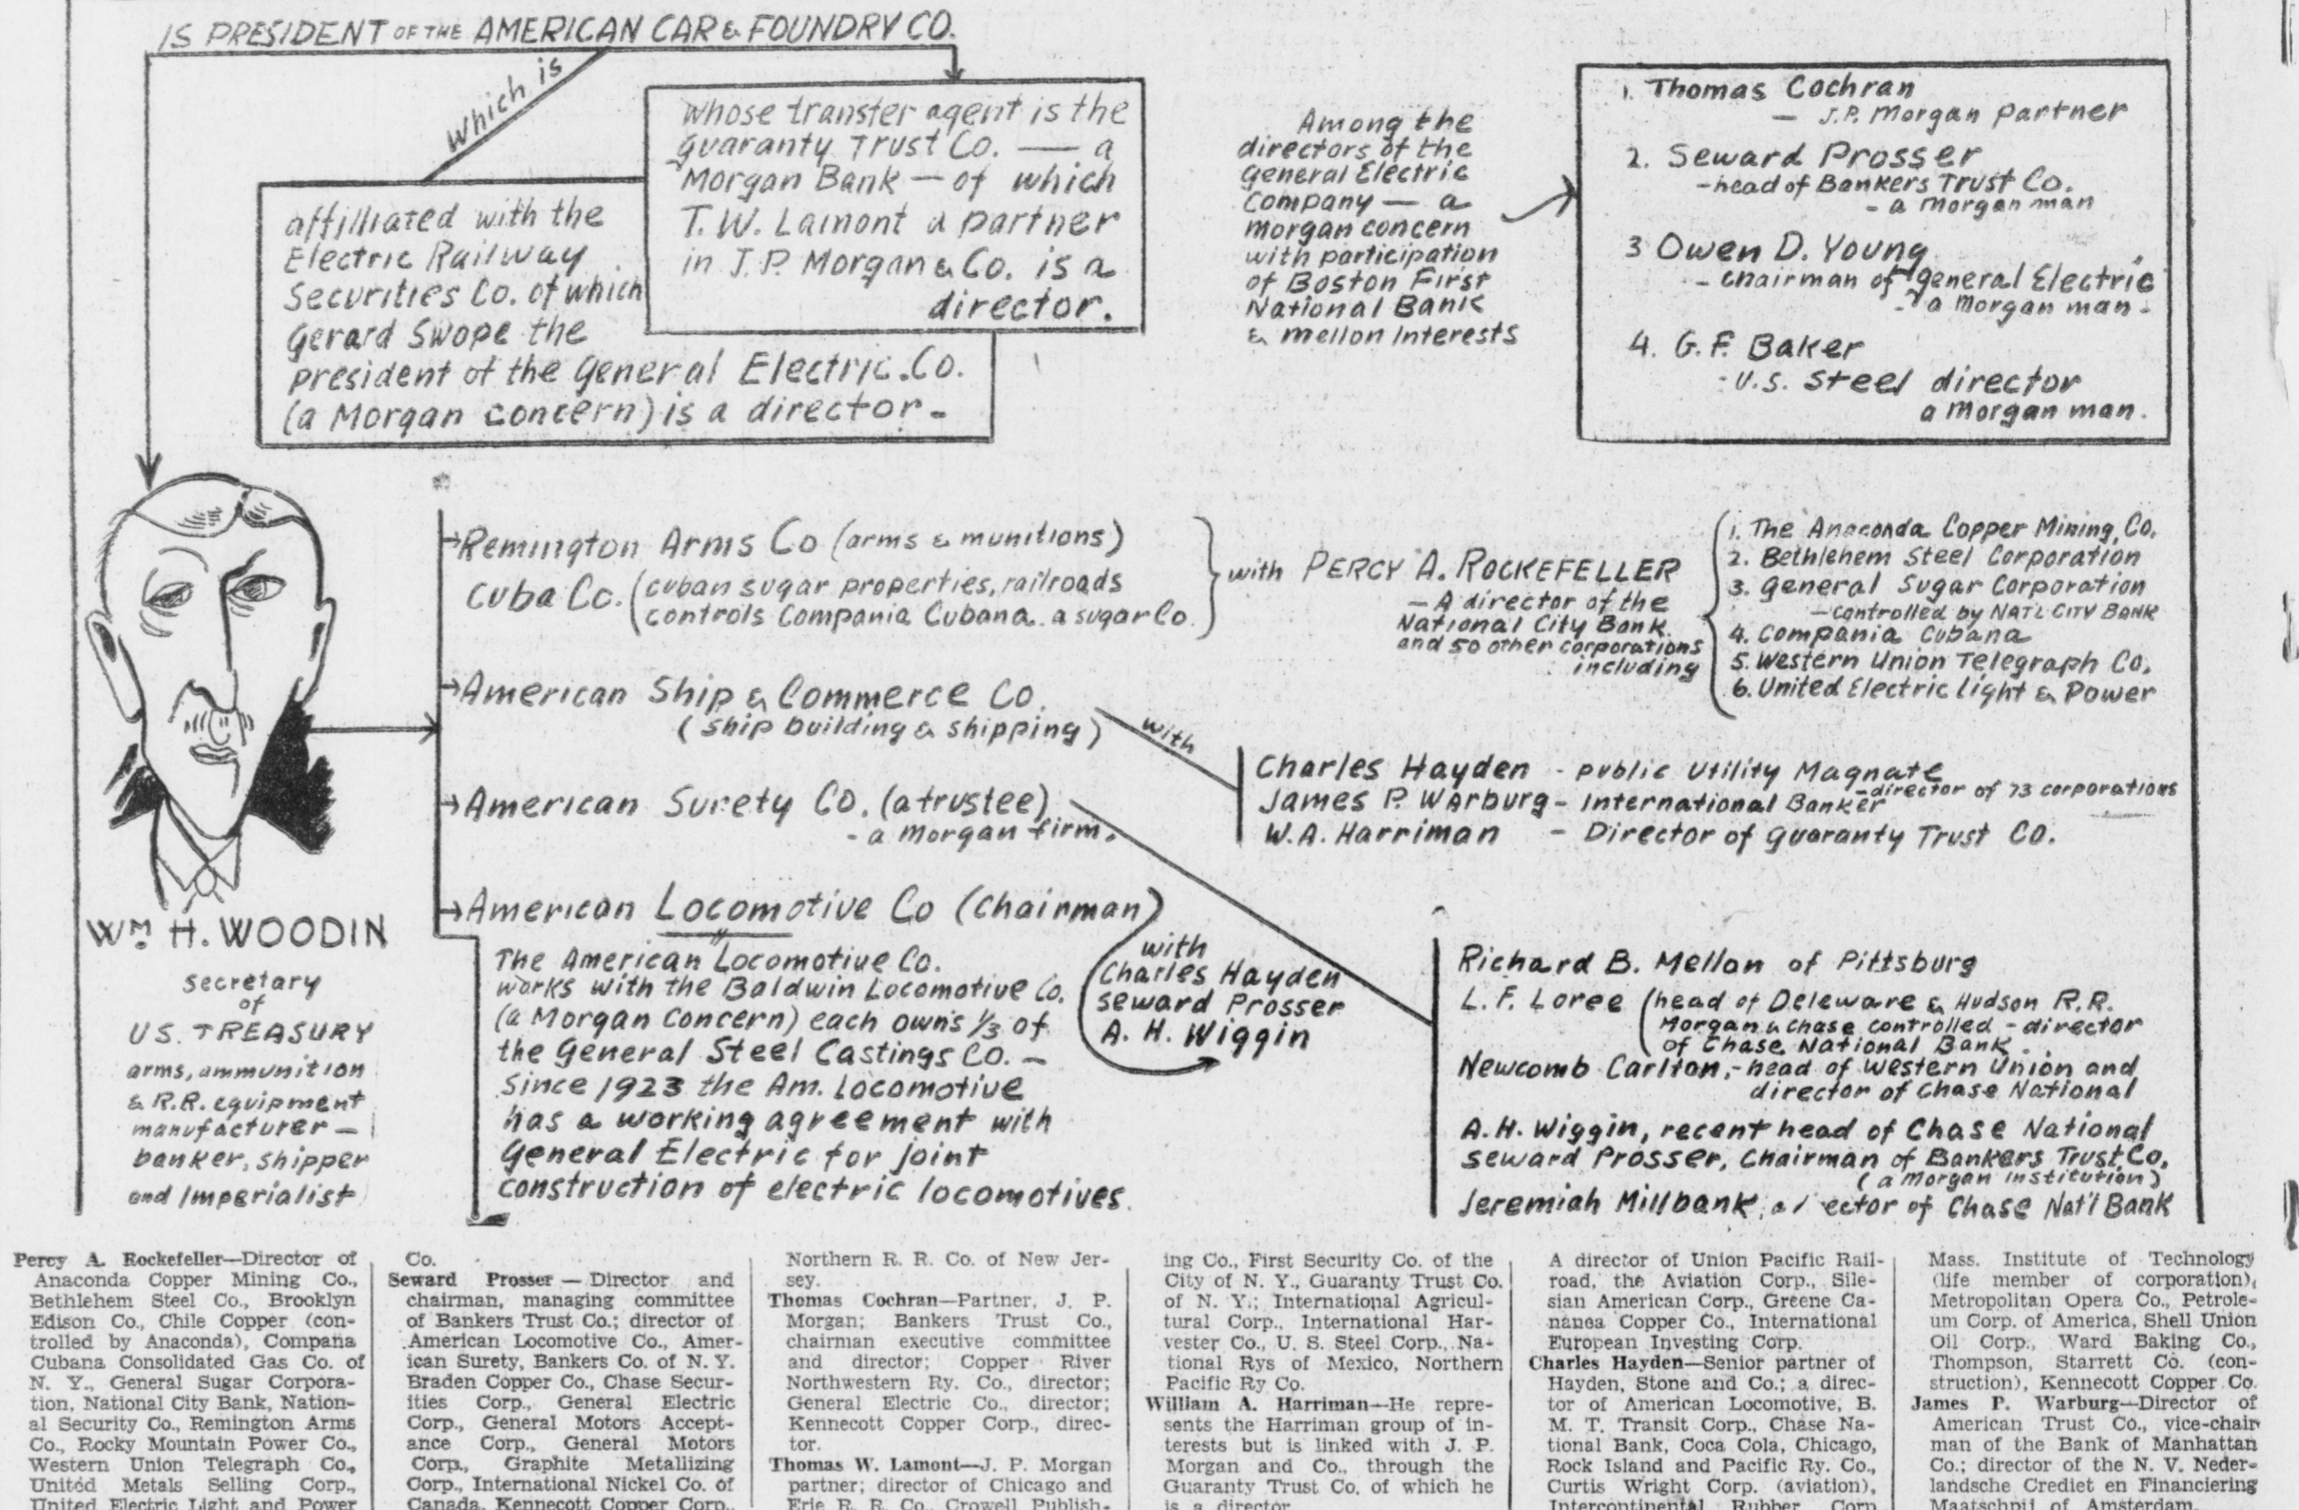 IS PRESIDENT OF THE AMERICAN CAR & FOUNDRY CO.
which is
whose transfer agent is the
guaranty Trust Co. — a
Morgan Bank — of which
T. W. Lamont a partner
in J. P. Morgan & Co. is a
director.
affilliated with the
Electric Railway
Securities Co. of which
Gerard Swope the
president of the General Electric. Co.
(a Morgan concern) is a director -
Among the
directors of the
General Electric
Company — a
morgan concern
with participation
of Boston First
National Bank
& mellon Interests
1. Thomas Cochran
— J.P. Morgan partner
2. Seward Prosser
- head of Bankers Trust Co.
- a Morgan man
3 Owen D. Young
- chairman of general Electric
- a Morgan man -
4. G. F. Baker
- U.S. Steel director
a Morgan man.
WM H. WOODIN
secretary
of
US. TREASURY
arms, ammunition
& R.R. equipment
manufacturer —
banker, shipper
and Imperialist
Remington Arms Co (arms & munitions)
Cuba Co. (cuban sugar properties, railroads
controls Compania Cubana. a sugar Co.
with PERCY A. ROCKEFELLER
— A director of the
National City Bank
and 50 other corporations
including
1. The Anaconda Copper Mining, Co.
2. Bethlehem Steel Corporation
3. General Sugar Corporation
— controlled by NAT'L CITY BANK
4. Compania Cubana
5. Western Union Telegraph Co.
6. United Electric light & Power
American Ship & Commerce Co.
(ship building & shipping)
with
Charles Hayden - public Utility Magnate
- director of 73 corporations
James P. Warburg - International Banker
W.A. Harriman - Director of Guaranty Trust Co.
American Surety Co. (a trustee)
- a Morgan firm.
Richard B. Mellon of Pittsburg
L. F. Loree (head of Deleware & Hudson R.R.
Morgan & Chase controlled - director
of Chase National Bank.
Newcomb Carlton, - head of Western Union and
director of Chase National
A. H. Wiggin, recent head of Chase National
Seward Prosser, Chairman of Bankers Trust Co,
(a Morgan institution)
Jeremiah Millbank, ector of Chase Nat'l Bank
American Locomotive Co (Chairman)
with
Charles Hayden
Seward Prosser
A. H. Wiggin
The American Locomotive Co.
works with the Baldwin Locomotive Co.
(a Morgan Concern) each owns 1/3 of
the General Steel Castings Co. —
Since 1923 the Am. Locomotive
has a working agreement with
General Electric for joint
construction of electric locomotives.
Percy A. Rockefeller—Director of
Anaconda Copper Mining Co.,
Bethlehem Steel Co., Brooklyn
Edison Co., Chile Copper (con-
trolled by Anaconda), Compana
Cubana Consolidated Gas Co. of
N. Y., General Sugar Corpora-
tion, National City Bank, Nation-
al Security Co., Remington Arms
Co., Rocky Mountain Power Co.,
Western Union Telegraph Co.,
United Metals Selling Corp.,
United Electric Light and Power
Co.
Seward Prosser — Director and
chairman, managing committee
of Bankers Trust Co.; director of
American Locomotive Co., Amer-
ican Surety, Bankers Co. of N. Y.
Braden Copper Co., Chase Secur-
ities Corp., General Electric
Corp., General Motors Accept-
ance Corp., General Motors
Corp., Graphite Metallizing
Corp., International Nickel Co. of
Canada, Kennecott Copper Corp.,
Northern R. R. Co. of New Jer-
sey.
Thomas Cochran—Partner, J. P.
Morgan; Bankers Trust Co.,
chairman executive committee
and director; Copper River
Northwestern Ry. Co., director;
General Electric Co., director;
Kennecott Copper Corp., direc-
tor.
Thomas W. Lamont—J. P. Morgan
partner; director of Chicago and
Erie R. R. Co., Crowell Publish-
ing Co., First Security Co. of the
City of N. Y., Guaranty Trust Co.
of N. Y.; International Agricul-
tural Corp., International Har-
vester Co., U. S. Steel Corp., Na-
tional Rys of Mexico, Northern
Pacific Ry Co.
William A. Harriman—He repre-
sents the Harriman group of in-
terests but is linked with J. P.
Morgan and Co., through the
Guaranty Trust Co. of which he
is a director.
A director of Union Pacific Rail-
road, the Aviation Corp., Sile-
sian American Corp., Greene Ca-
nanea Copper Co., International
European Investing Corp.
Charles Hayden—Senior partner of
Hayden, Stone and Co.; a direc-
tor of American Locomotive, B.
M. T. Transit Corp., Chase Na-
tional Bank, Coca Cola, Chicago,
Rock Island and Pacific Ry. Co.,
Curtis Wright Corp. (aviation),
Intercontinental Rubber Corp.
Mass. Institute of Technology
(life member of corporation),
Metropolitan Opera Co., Petrole-
um Corp. of America, Shell Union
Oil Corp., Ward Baking Co.,
Thompson, Starrett Co. (con-
struction), Kennecott Copper Co.
James P. Warburg—Director of
American Trust Co., vice-chair
man of the Bank of Manhattan
Co.; director of the N. V. Neder-
landsche Crediet en Financiering
Maatschpij of Amsterdam.